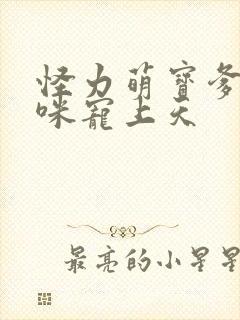 怪力萌寶爹
咪寵上天
最亮的小星星